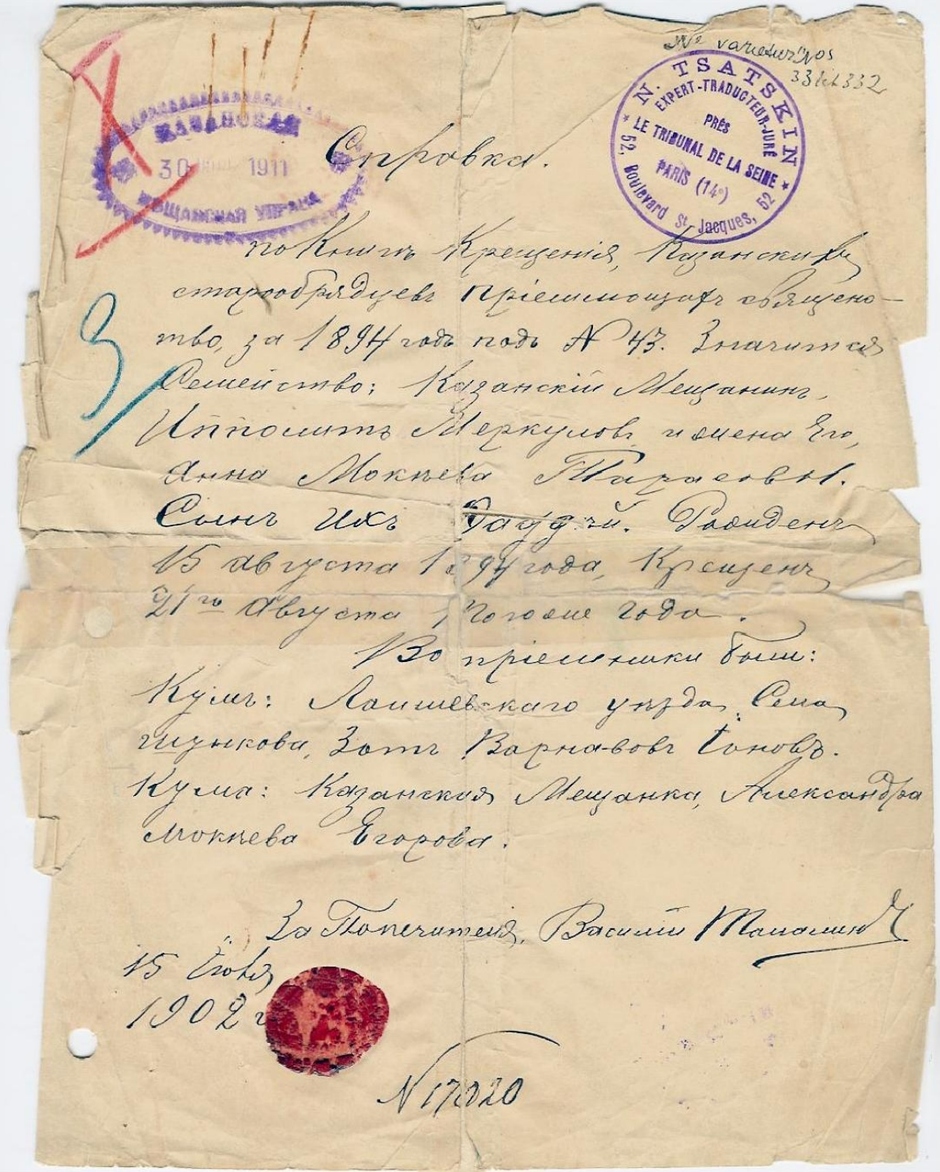 Ne varietur Nos
331 et 332
N. TSATSKIN
EXPERT-TRADUCTEUR-JURÉ
PRÈS
LE TRIBUNAL DE LA SEINE
PARIS (14e)
52, Boulevard St Jacques, 52
КАЗАНСКАЯ
30 1911
МѢЩАНСКАЯ УПРАВА
Справка.
по Книгѣ Крещенія, Казанскихъ
старообрядцевъ пріемлющихъ священ-
тво, за 1894 годъ подъ № 43. Значится
Семейство: Казанскій Мещанинъ,
Ипполитъ Меркуловъ и жена Его,
Анна Мокѣева Тарасовы.
Сынъ Ихъ Фаддей. Рожденъ
15 августа 1894 года, Крещенъ
21го августа того же года.
Во пріемники были:
Кумъ: Лаишевскаго уѣзда, Села
Зотъ Варнавовъ Іоновъ.
Кума: Казанская Мещанка, Александра
Мокѣева Егорова.
За Попечителя, Василій
15
1902 г
N 17020